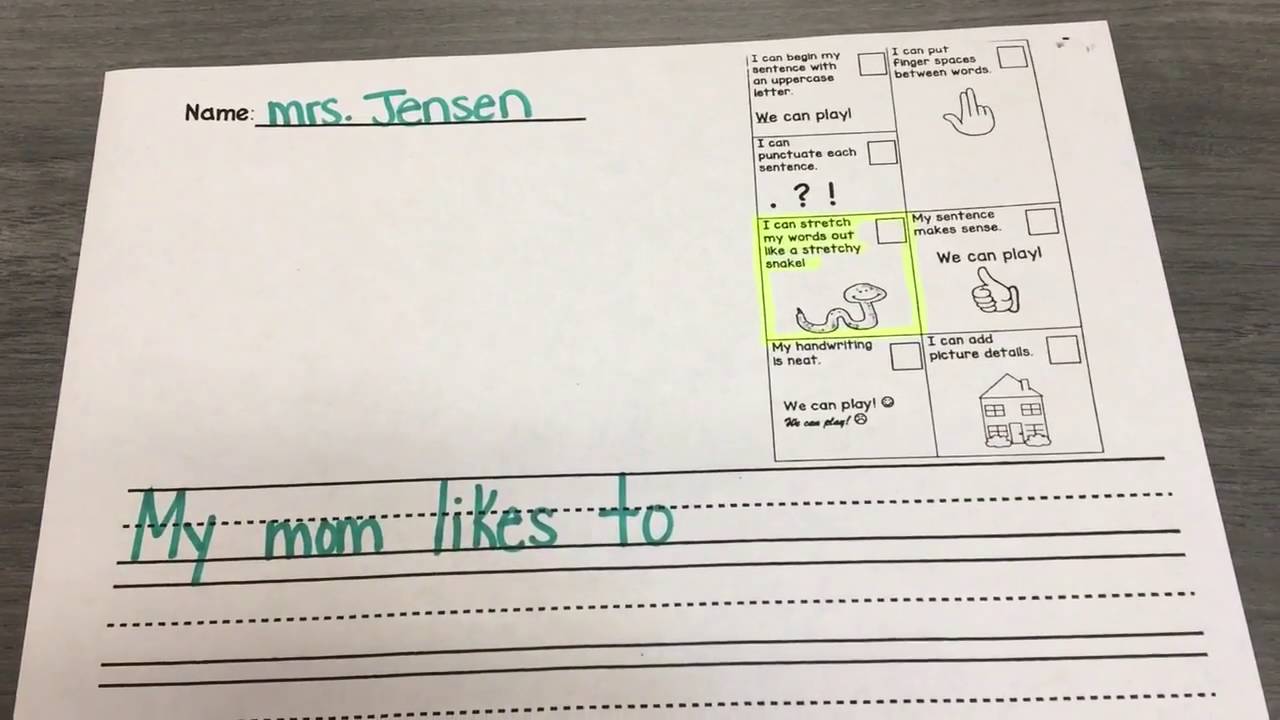 Name: mrs. Jensen
I can begin my
sentence with
an uppercase
letter.
We can play!
I can put
finger spaces
between words.
I can
punctuate each
sentence.
. ? !
I can stretch
my words out
like a stretchy
snake!
My sentence
makes sense.
We can play!
My handwriting
is neat.
We can play!
We can play!
I can add
picture details.
My mom likes to